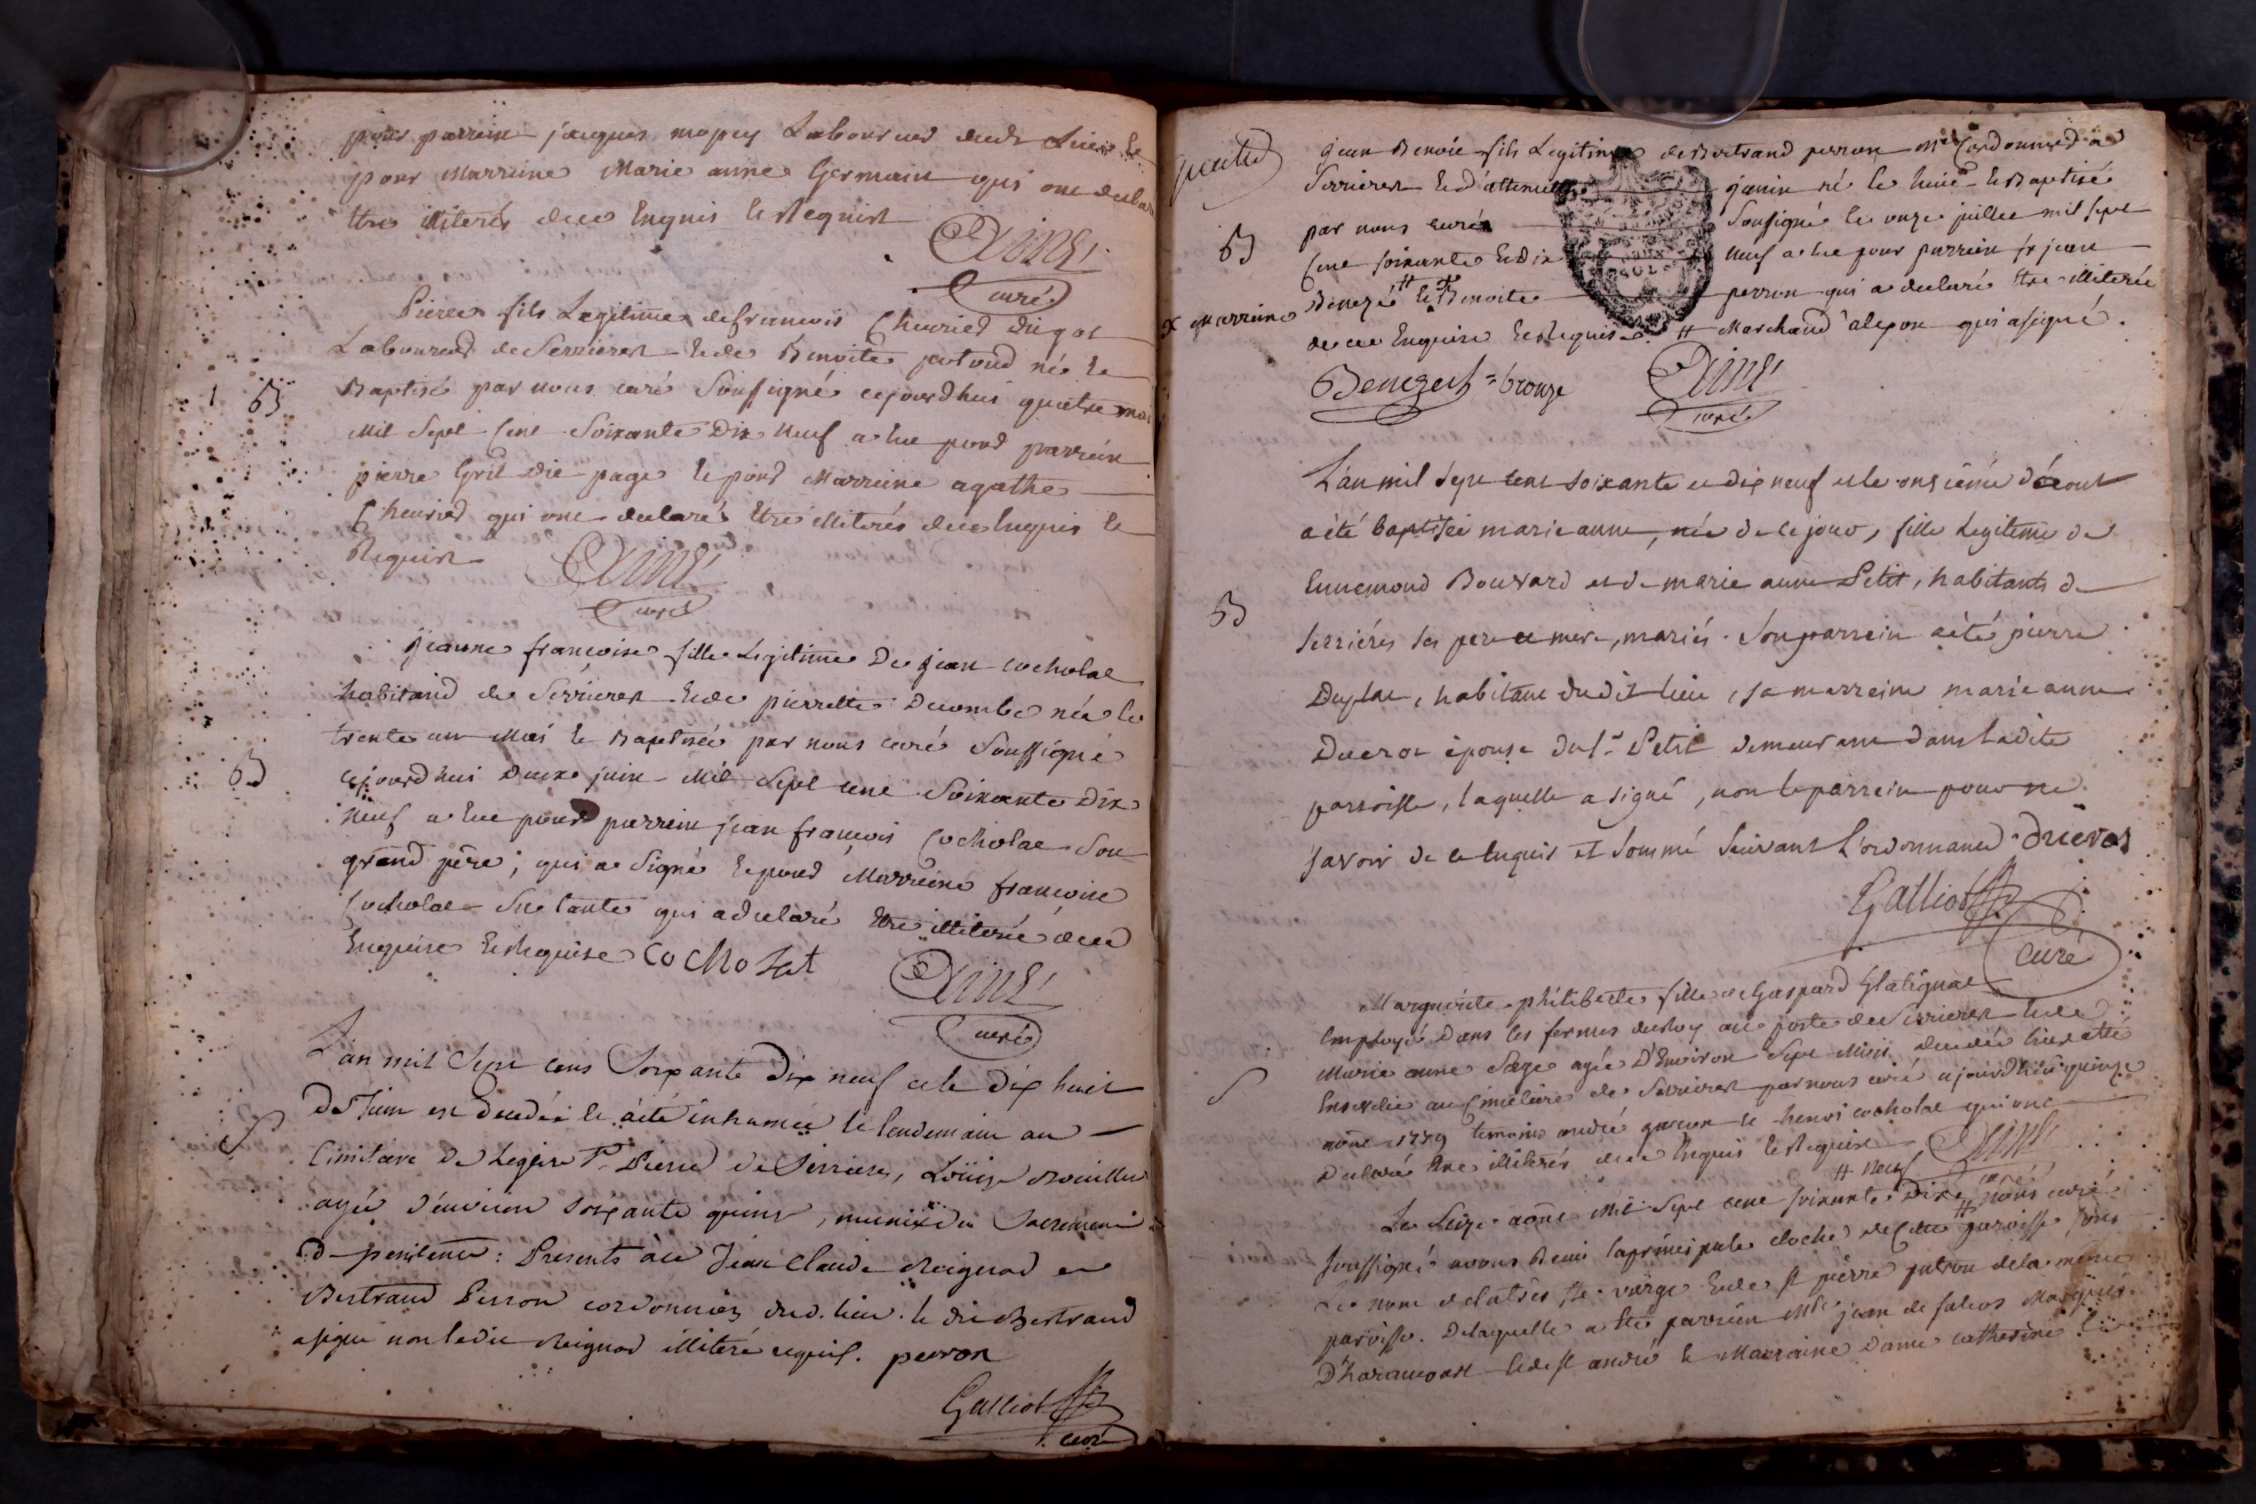 pour parrein jacques mapuy Laboureur dudt Lieu et
pour Marreine Marie anne Germain qui ont declaré
Etre illiterés de ce Enquis et Requist
Aimé
curé
Pierre fils Legitime de francois Cheuried Digot
Laboureur de Serrieres et de Benoite patoud né et
B
Baptisé par nous curé Soussigné cejourdhui quatre mai
Mil Sept Cent Soixante Dix Neuf a Eu pour parrein
pierre Gril Dit page et pour Marreine agathe
Cheuried qui ont declaré Etre illiterés de ce Enquis et
Requist
Aimé
curé
Jeanne francoise fille Legitime De jean cocholat
habitand de Serrieres et de pierrette Decombe née le
trente un Mai et Baptisée par nous curé Soussigné
B
cejourdhui Deux juin Mil Sept cent Soixante Dix
Neuf a Eu pour parrein jean francois Cocholat Son
grand père ; qui a Signé et pour Marreine francoise
Cocholat Sa tante qui a declaré Etre illiterée de ce
Enquise et Requise CochoLat
Aimé
curé
L'an mil Sept cens Soixante Dix neuf et le Dix huit
De Juin est Decedée et a été inhumée le lendemain au
S
Cimitiere De Leglise St Pierre de Serrieres, Loüise
agée d'environ soixante quinze, munie du Sacrement
de penitence : Presents à ce Jean Claude Reignod et
Bertrand Perron cordonnier dud. lieu. le dit Bertrand
a signé non ledit Reignod illiteré requis. perron
Galliot
curé
jean Benoit fils Legitime de Bertrand perron Me Cordonnied a
Serrieres et d'attenuette janin né le huit et Baptisé
B
par nous curé Soussigné le onze juillet mil sept
Cent soixante et Dix neuf a Eu pour parrein sr jean
x marreine Benezé # et x Benoite perron qui a declaré Etre illiterée
de ce Enquise et Requise. # Marchand a lepon qui a signé.
Benezech = bronze
Aimé
curé
L'an mil sept cent soixante et dix neuf et le onzieme d'aout
a été baptisée marie anne, née de ce jour, fille legitime de
B
Ennemond Bouvard et de marie anne Petit, habitants de
serriéres ses pere et mere, mariés. Son parrein a été pierre
Duplat, habitant dudit lieu, sa marreine marie anne
Ducrot épouse du sr Petit demeurant dans ladite
parroisse, laquelle a signé, non le parrein pour ne
savoir de ce enquis et sommé suivant l'ordonnance. ducros
Galliot
curé
Marguerite philiberte fille de Gaspard Glatignat
Employé Dans les fermes du Roy au poste de Serrieres et de
S
Marie anne Sage agée D'Environ Sept Mois decedée hier a été
Ensevelie au Cimetiere de Serrieres par nous curé ajourdhui quinze
aout 1779 temoins andré garcon et henri cocholat qui ont
Declaré Etre illiterés de ce Enquis et Requis
Aimé
curé
# Neuf
Le Seize aout Mil Sept cent soixante Dix # nous curé
soussigné avons Beni la principale cloche de Cette paroisse sous
Le nom de la très Ste vierge et de St pierre patron de la même
paroisse. De laquelle a été parrein Mre jean de fallos Marquis
D'haraucourt et de St andré et Marraine Dame catherine